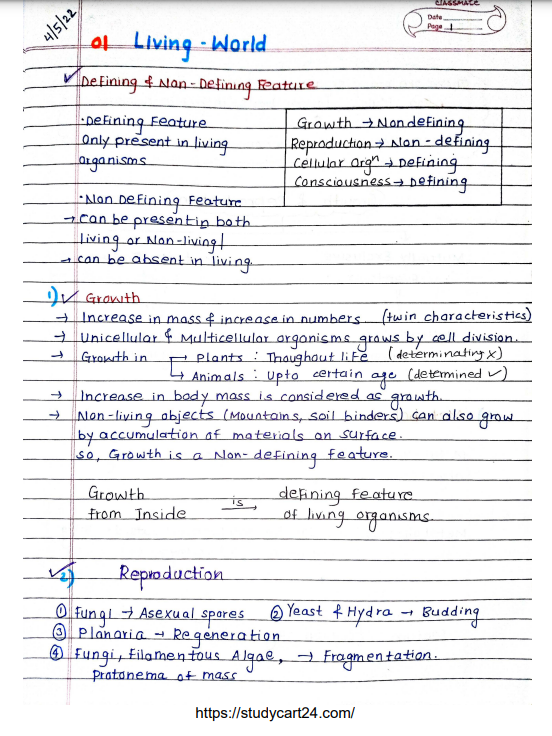 CLASSMATE
Date
Page 1
4/5/22
01 Living - World
Defining & Non - Defining Feature
• Defining Feature
Only present in living
organisms
Growth → Non defining
Reproduction → Non - defining
Cellular Orgⁿ → Defining
Consciousness → Defining
• Non Defining Feature
→ can be present in both
living or Non-living/
→ can be absent in living.
1) Growth
→ Increase in mass & increase in numbers (twin characteristics)
→ Unicellular & Multicellular organisms grows by cell division.
→ Growth in → Plants : Thoughout life (determinating x)
→ Animals : Upto certain age (determined ✓)
→ Increase in body mass is considered as growth.
→ Non-living objects (Mountains, soil binders) can also grow
by accumulation of materials on surface.
so, Growth is a Non-defining feature.
Growth from Inside is → defining feature
of living organisms.
2) Reproduction
① Fungi → Asexual spores ② Yeast & Hydra → Budding
③ Planaria → Regeneration
④ Fungi, Filamentous Algae, → Fragmentation.
Protonema of mass
https://studycart24.com/